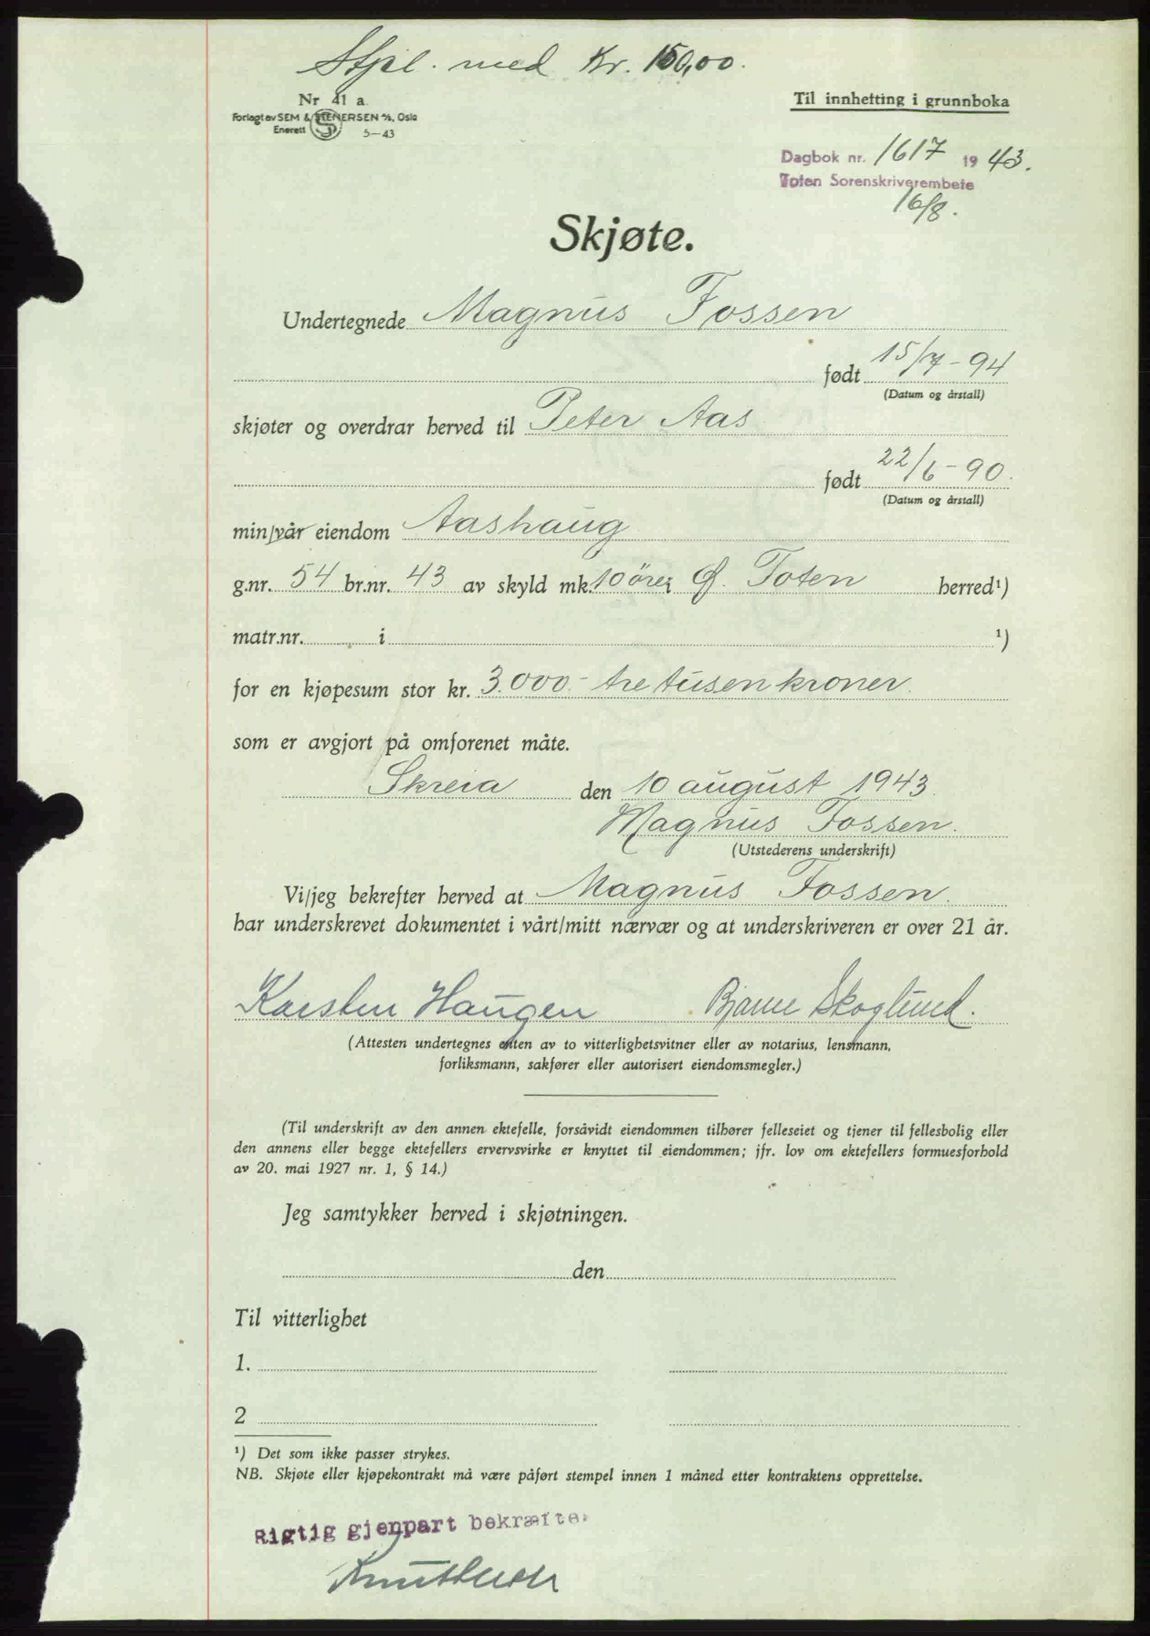 Stpl. med Kr. 150,00.
Nr 41 a.
Forlagt av SEM & STENERSEN A/S, Oslo
Enerett 5—43
Til innhefting i grunnboka
Dagbok nr. 1617 1943.
Toten Sorenskriverembete
16/8.
Skjøte.
Undertegnede Magnus Fossen
født 15/7-94
(Datum og årstall)
skjøter og overdrar herved til Peter Aas
født 22/6-90.
(Datum og årstall)
min/vår eiendom Aashaug
g.nr. 54 br.nr. 43 av skyld mk. 10 øre i Ø. Toten herred¹)
matr.nr. i ¹)
for en kjøpesum stor kr. 3.000.- tre tusen kroner.
som er avgjort på omforenet måte.
Skreia den 10 august 1943.
Magnus Fossen.
(Utstederens underskrift)
Vi/jeg bekrefter herved at Magnus Fossen.
har underskrevet dokumentet i vårt/mitt nærvær og at underskriveren er over 21 år.
Karsten Haugen Bjarne Skoglund.
(Attesten undertegnes enten av to vitterlighetsvitner eller av notarius, lensmann,
forliksmann, sakfører eller autorisert eiendomsmegler.)
(Til underskrift av den annen ektefelle, forsåvidt eiendommen tilhører felleseiet og tjener til fellesbolig eller
den annens eller begge ektefellers ervervsvirke er knyttet til eiendommen; jfr. lov om ektefellers formuesforhold
av 20. mai 1927 nr. 1, § 14.)
Jeg samtykker herved i skjøtningen.
den
Til vitterlighet
1.
2
¹) Det som ikke passer strykes.
NB. Skjøte eller kjøpekontrakt må være påført stempel innen 1 måned etter kontraktens opprettelse.
Rigtig gjenpart bekræftes